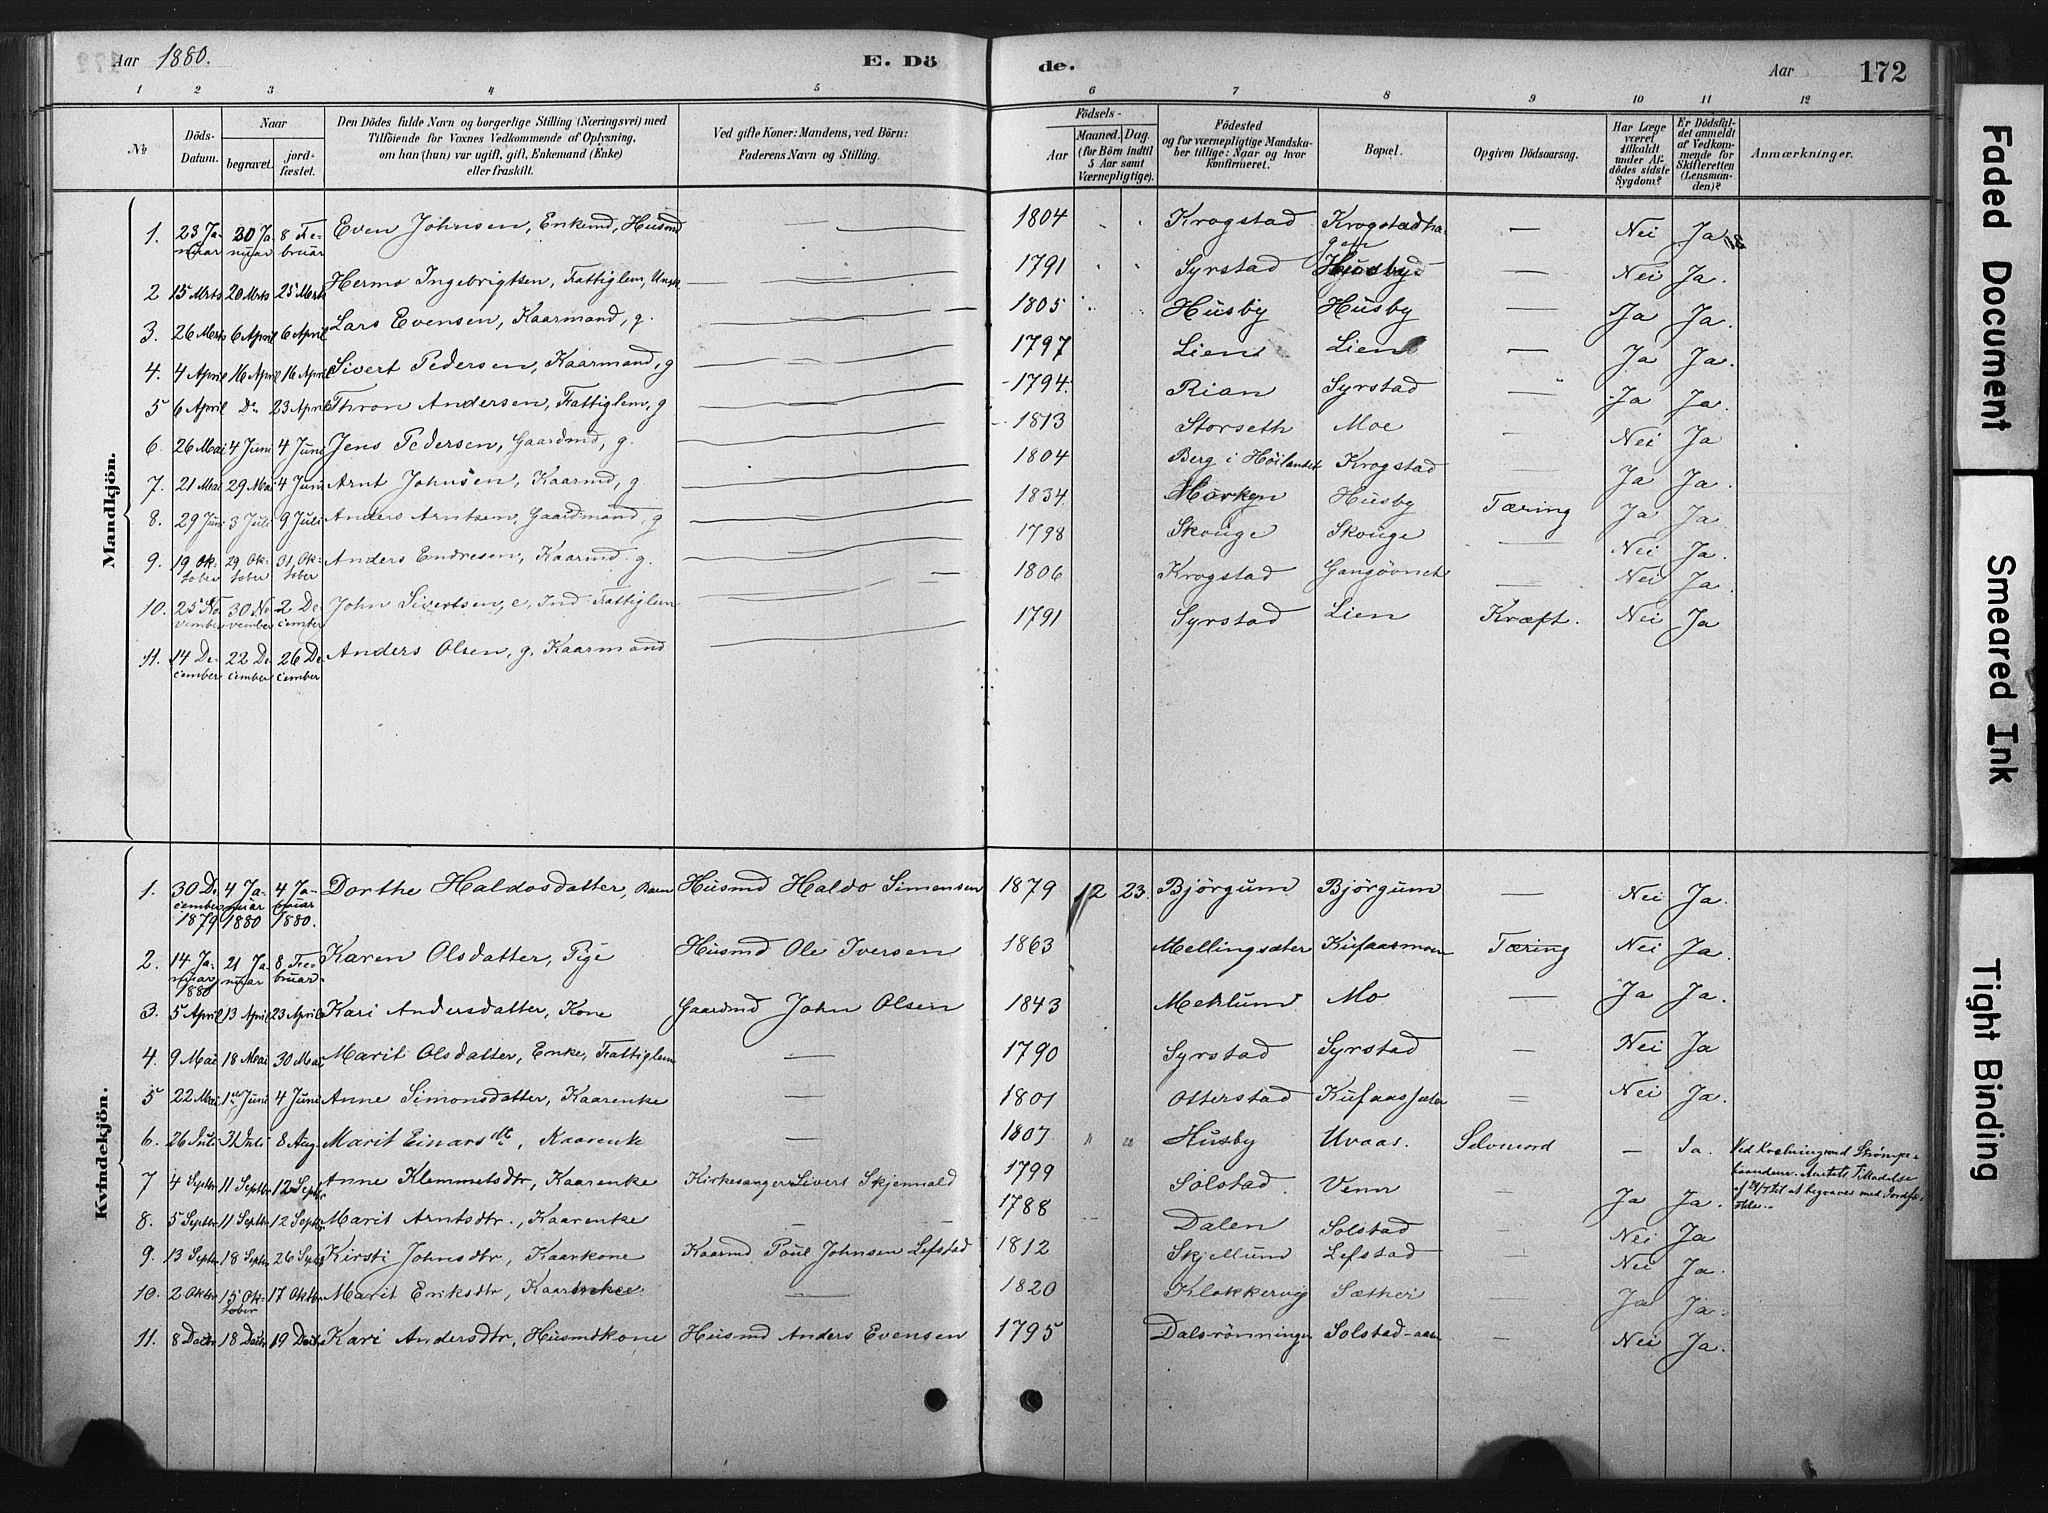 Aar 1880.
E. Dö
de.
Aar
172
1 2 3 4 5 6 7 8 9 10 11 12
№
Döds-Datum.
Naar
begravet.
jord-fæstet.
Den Dödes fulde Navn og borgerlige Stilling (Næringsvei) med
Tilföiende for Voxnes Vedkommende af Oplysning,
om han (hun) var ugift, gift, Enkemand (Enke)
eller fraskilt.
Ved gifte Koner: Mandens, ved Börn:
Faderens Navn og Stilling.
Födsels-
Aar
Maaned. Dag.
(for Börn indtil
5 Aar samt
Værnepligtige).
Födested
og for værnepligtige Mandska-
ber tillige: Naar og hvor
konfirmeret.
Bopæl.
Opgiven Dödsaarsag.
Har Læge
været
tilkaldt
under Af-
dödes sidste
Sygdom?
Er Dödsfal-
det anmeldt
af Vedkom-
mende for
Skifteretten
(Lensman-
den)?
Anmærkninger.
Mandkjön.
1. 23 Januar 30 Januar 8 Februar Even Johnsen, Enkemd, Husmd — 1804 Krogstad Krogstadhagen — Nei Ja
2 15 Mrts 20 Mrts 25 Mrts Hermo Ingebrigtsen, Fattiglem, — 1791 Syrstad Husby — Nei Ja.
3. 26 Mrts 6 April 6 April Lars Evensen, Kaarmand, g. — 1805 Husby Husby — Ja Ja.
4. 4 April 16 April 16 April Sivert Pedersen, Kaarmand, g — 1797 Lien Lien — Ja Ja.
5 6 April Do 23 April Thron Andersen, Fattiglem, g — 1794. Rian Syrstad — Ja Ja.
6. 26 Mai 4 Juni 4 Juni Jens Pedersen, Gaardmd, g. — 1813 Storseth Moe — Nei Ja
7. 21 Mai 29 Mai 4 Juni Arnt Johnsen, Kaarmd, g. — 1804 Berg i Höilandet Krogstad — Ja Ja.
8. 29 Juni 3 Juli 9 Juli Anders Arntsen, Gaardmand, g — 1834. Husby Tæring Ja Ja
9. 19 Oktober 29 Oktober 31 Oktober Anders Endresen, Kaarmd. g. — 1798 Skouge Skouge — Nei Ja.
10. 25 November 30 November 2 December John Sivertsen, e, Ind Fattiglem — 1806 Krogstad — Nei Ja.
11. 14 December 22 December 26 December Anders Olsen, g, Kaarmand — 1791 Syrstad Lien Kræft. Nei Ja
Kvindekjön.
1. 30 December 1879 4 Januar 1880 4 Januar 1880. Dorthe Haldosdatter, Barn Husmd Haldo Simensen 1879 12 23. Bjørgum Bjørgum — Nei Ja.
2. 14 Januar 1880 21 Januar 8 Februar. Karen Olsdatter, Pige Husmd Ole Iversen 1863 Mellingsæter Kufaasmoen Tæring Nei Ja.
3. 5 April 13 April 23 April Kari Andersdatter, Kone Gaardmd John Olsen 1843 Meklum Mo — Ja Ja.
4. 9 Mai 18 Mai 30 Mai Marit Olsdatter, Enke, Fattiglem — 1790 Syrstad Syrstad — Nei Ja
5 22 Mai 1ste Juni 4 Juni Anne Simonsdatter, Kaarenke — 1801 Otterstad Kufaassæter — Nei Ja.
6. 26 Juli 31 Juli 8 Aug. Marit Einarsdt, Kaarenke — 1807. 11 20 Husby Uvaas. Selvmord — Ja. Ved Kvælning med Strømpe-
baandene. Amtets Tilladelse
af 28/7 til at begraves med Jordfæ-
stelse.
7 4 Septbr 11 Septbr 12 Septbr Anne Klemmetsdtr, Kaarenke Kirkesanger Sivert Skjennald 1799 Solstad. Venn Ja Ja.
8. 5 Septbr 11 Septbr 12 Septbr Marit Arntsdtr., Kaarenke — 1788 Dalen Solstad Nei Ja
9. 13 Septbr 18 Septbr 26 Septbr Kirsti Johnsdtr, Kaarkone Kaarmd Poul Johnsen Lefstad 1812 Skjellum Lefstad Nei Ja.
10. 2 Oktbr 15 Oktober 17 Oktbr Marit Eriksdtr, Kaarenke — 1820 Klokkervig Sætheri — Ja Ja.
11. 8 Decbr 18 Decbr 19 Decbr Kari Andersdtr, Husmdkone Husmd Anders Evensen 1795 Dalsrønningen Solstad-aas — Nei Ja.
Faded Document
Smeared Ink
Tight Binding